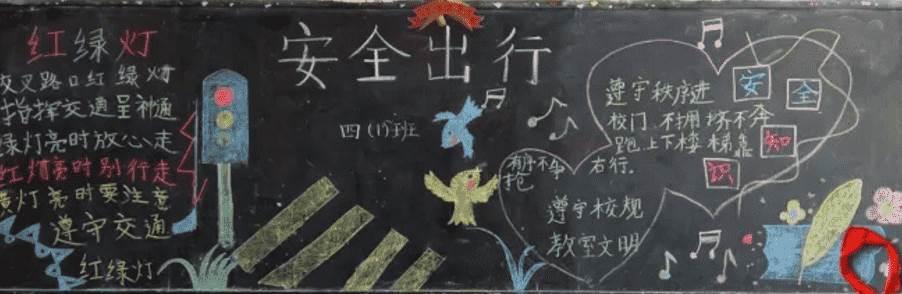 红绿灯
交叉路口红绿灯
指挥交通显神通
绿灯亮时放心走
红灯亮时别行走
黄灯亮时要注意
遵守交通
红绿灯
安全出行
四(1)班
安全
知识
遵守秩序进
校门 不拥挤不奔
跑 上下楼梯靠
右行。
不争
抢
遵守校规
教室文明